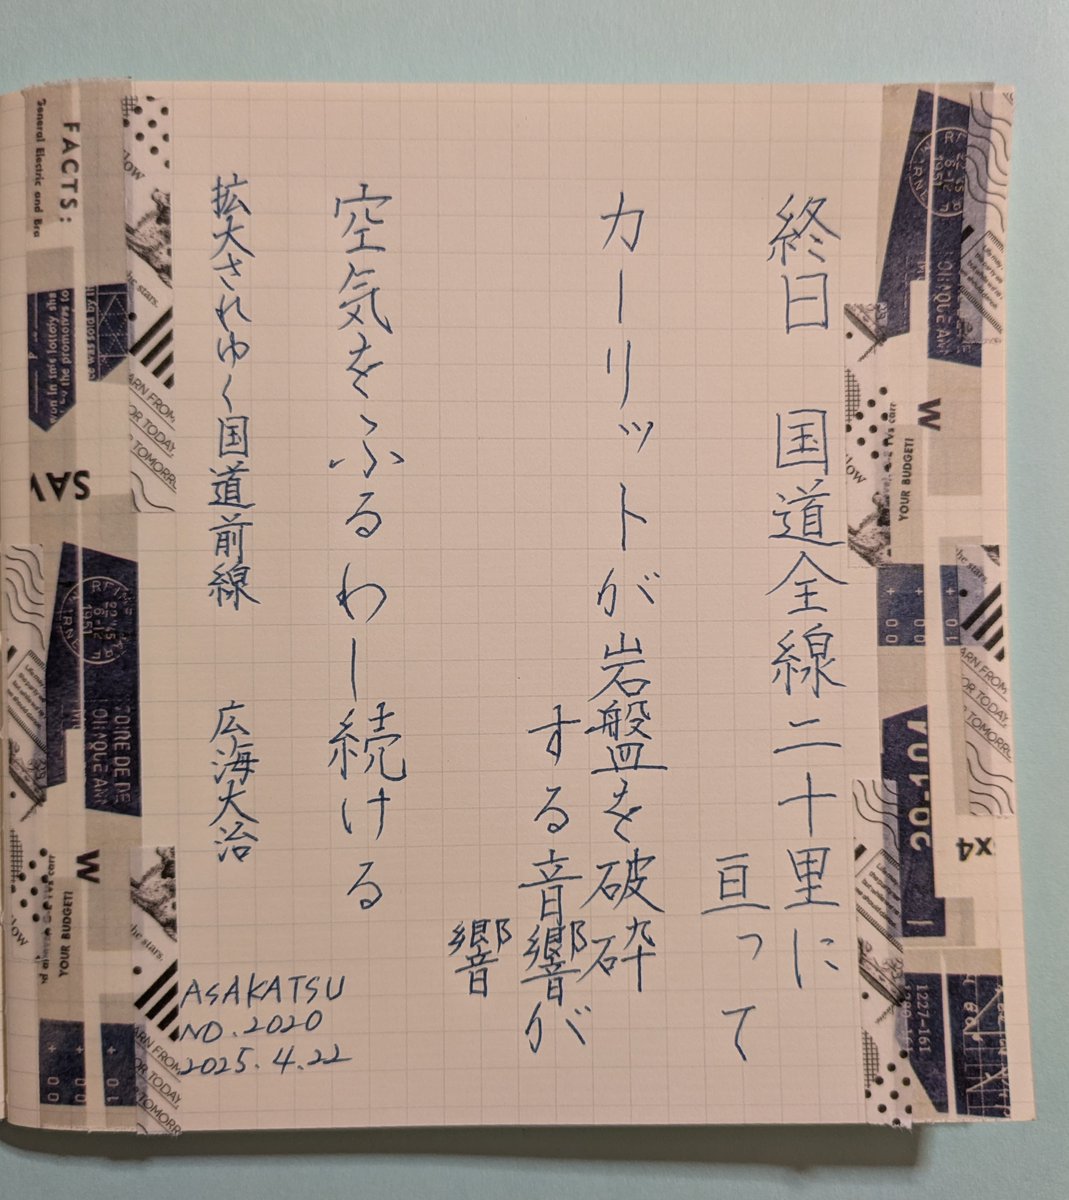 終日 国道全線二十里に
亘って
カーリットが岩盤を破砕
する音響が
響
空気をふるわし続ける
拡大されゆく国道前線 広海大治
ASAKATSU
NO.2020
2025.4.22
FACTS:
General Electric and Bra
the stars.
SAV
ARN FROM
OR TODAY,
TOMORRO
W
YOUR BUDGET!
W
YOUR BUDGET!
x4